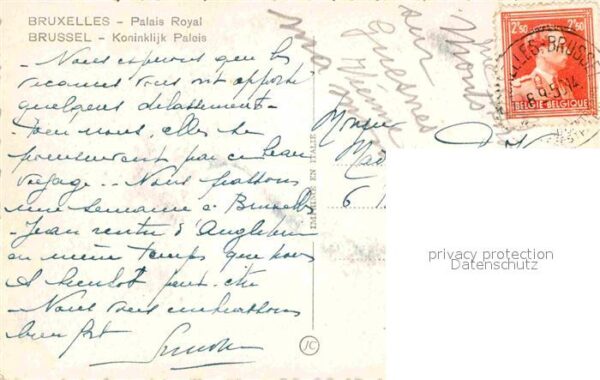 BRUXELLES – Palais Royal
BRUSSEL – Koninklijk Paleis
- Nous espérons que les
vacances vous ont apporté
quelques délassement -
Pour nous, elles se
poursuivent par ce beau
voyage - - Nous passons
une semaine à Bruxelles
- Jean rentre d'Angleterre
en même temps que nous
A bientôt peut-être
- Nous vous embrassons
bien fort
Simone
IMPRIMÉ EN ITALIE
Monsieur
Mad
6
sur
Vienne
2F50 2F50
BELGIE BELGIQUE
BRUXELLES-BRUSSEL
privacy protection
Datenschutz